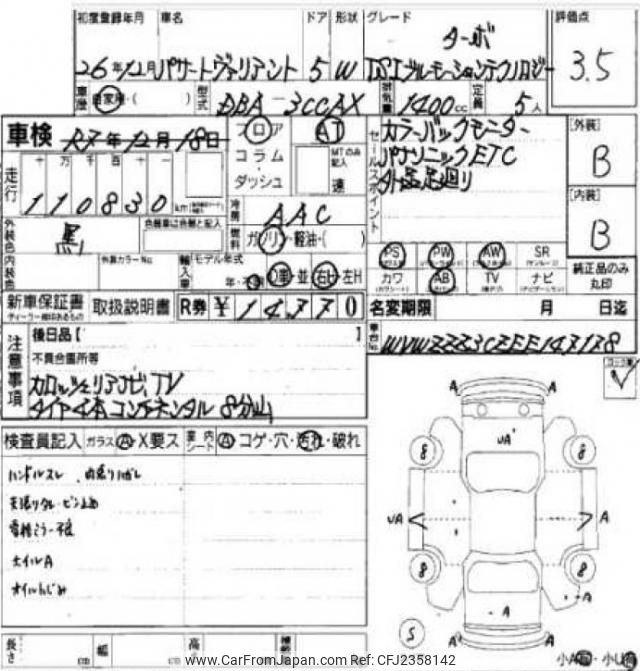 初度登録年月 車名 ドア 形状 グレード 評価点
ターボ
26年12月 パサートヴァリアント 5 W TSIブルーモーションテクノロジー 3.5
車歴 自家用・( ) 型式 DBA-3CCAX 排気量 1400cc 定員 5人
車検 R7年12月18日 フロア AT セールスポイント カラーバックモニター [外装]
コラム・ MTのみ記入 パナソニックETC B
走行 十 万 千 百 十 一 ダッシュ 速 外品足廻り
110830km 冷房 AAC [内装]
外装色 黒 色替車は色替と記入 燃料 ガソリン・軽油・( ) B
PS PW AW SR
内装色 外装カラーNo. 輸入車 モデル年式 純正品のみ丸印
年・ 並 右H 左H カワ AB TV ナビ
新車保証書 取扱説明書 R券 ¥ 14770 名変期限 月 日迄
ディーラー印のあるもの
後日品【 】 車台No. WVWZZZ3CZEE147178
注意事項 不具合箇所等
カロッツェリアナビ、TV
タイヤ4本コンチネンタル 8分山
検査員記入 ガラス A・X要ス 車内シート A コゲ・穴・汚れ・破れ
ハンドルスレ 内張りハガレ
天張りタレ・ピン止め
電格ミラー不良
ホイルA
オイルにじみ
A A
UA'
8 8
UA A
8 8
A
A
S A A
長さ cm 幅 cm 高さ
www.CarFromJapan.com Ref: CFJ2358142